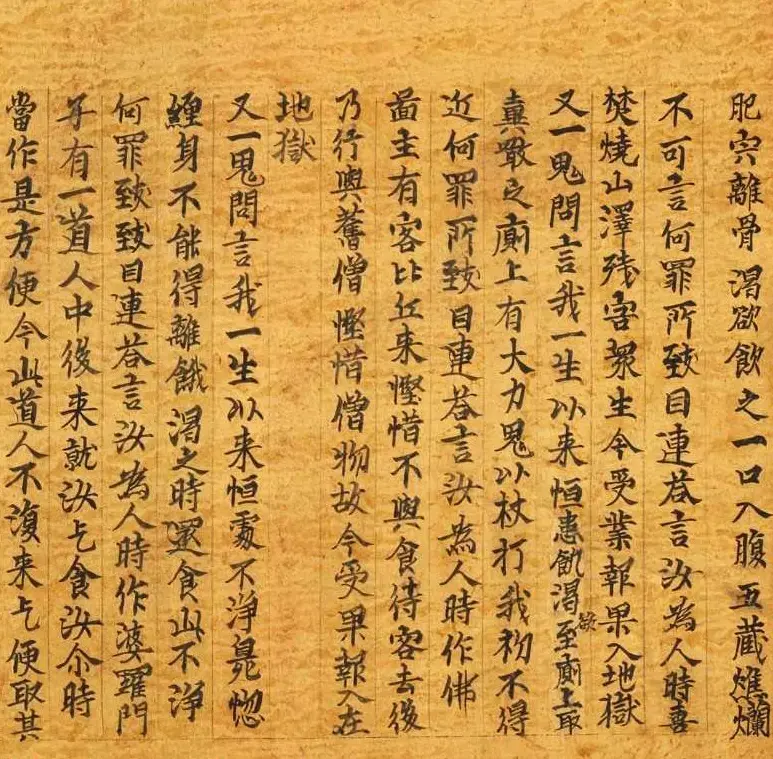 肥宍離骨渴欲飲之一口入腹五蔵燋爛
不可言何罪所致目連荅言汝為人時喜
焚燒山澤残害衆生今受業報果入地獄
又一鬼問言我一生以来恒患飢渴欲至廁上取
糞噉之廁上有大力鬼以杖打我初不得
近何罪所致目連荅言汝為人時作佛
啚主有客比丘来慳惜不與食待客去後
乃行與舊僧慳惜僧物故今受果報入在
地獄
又一鬼問言我一生以来恒處不淨臰惚
纏身不能得離餓渴之時還食此不淨
何罪致致目連荅言汝為人時作婆羅門
子有一道人中後来就汝乞食汝尒時
當作是方便今此道人不復来乞便取其